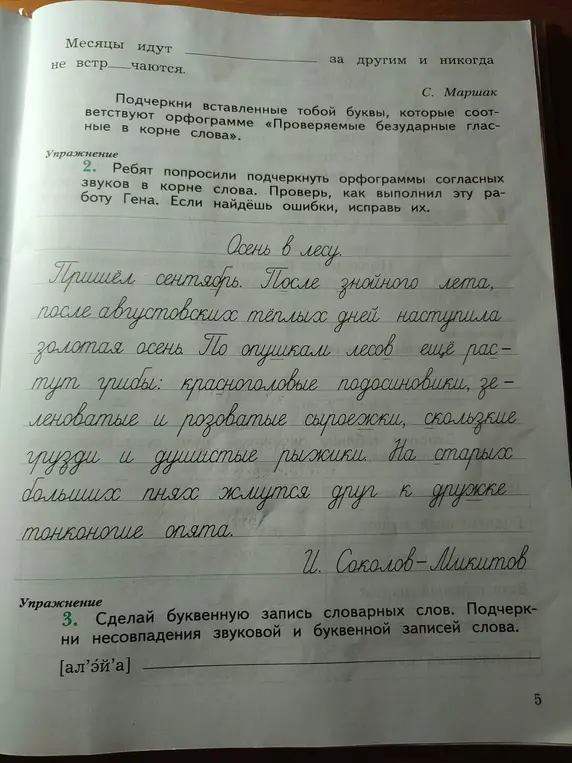 Месяцы идут ______________ за другим и никогда
не встр___чаются.
С. Маршак
Подчеркни вставленные тобой буквы, которые соот-
ветствуют орфограмме «Проверяемые безударные глас-
ные в корне слова».
Упражнение
2. Ребят попросили подчеркнуть орфограммы согласных
звуков в корне слова. Проверь, как выполнил эту ра-
боту Гена. Если найдёшь ошибки, исправь их.
Осень в лесу.
Пришёл сентябрь. После знойного лета,
после августовских тёплых дней наступила
золотая осень. По опушкам лесов ещё рас-
тут грибы: красноголовые подосиновики, зе-
леноватые и розоватые сыроежки, скользкие
грузди и душистые рыжики. На старых
больших пнях жмутся друг к дружке
тонконогие опята.
И. Соколов-Микитов
Упражнение
3. Сделай буквенную запись словарных слов. Подчерк-
ни несовпадения звуковой и буквенной записей слова.
[ал’э́й’а] ______________
5